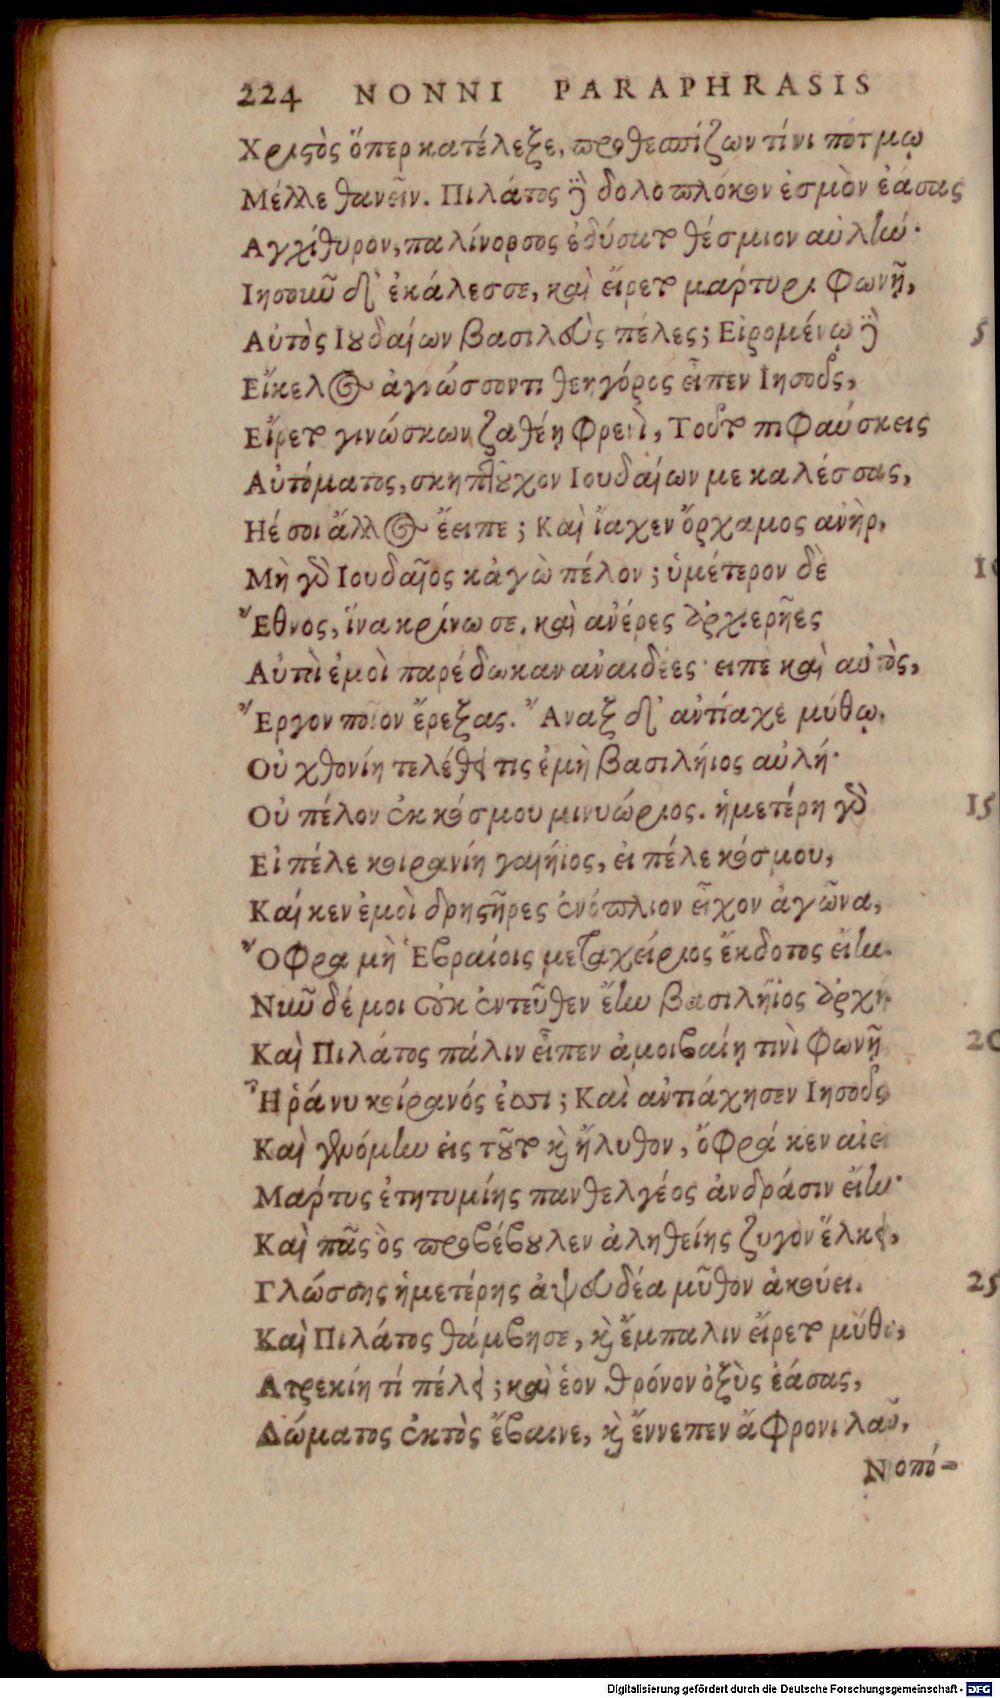 224 NONNI PARAPHRASIS
Χριστὸς ὅπερ κατέλεξε, προθεσπίζων τίνι πότμῳ
Μέλλε θανεῖν. Πιλάτος δὲ δολοπλόκον ἐσμὸν ἐάσας
Αγχίθυρον, παλίνορσος ἐδύσατο θέσμιον αὐλήν·
Ιησοιῶ δ' ἐκάλεσσε, καὶ εἴρετο μάρτυρι φωνῇ,
Αὐτὸς Ιουδαίων βασιλεὺς πέλες; Εἰρομένῳ δὲ 5
Εἴκελος ἀγνώσσοντι θεηγόρος εἶπεν Ιησοῦς,
Εἴρετο γινώσκων ζαθέῃ φρενὶ, Τοῦτο πιφαύσκεις
Αὐτόματος, σκηπτοῦχον Ιουδαίων με καλέσσας,
Ηέ σοι ἄλλος ἔειπε; Καὶ ἴαχεν ὄρχαμος ἀνὴρ,
Μὴ γὸ Ιουδαῖος κἀγὼ πέλον; ὑμέτερον δὲ 10
Ἔθνος, ἵνα κρίνω σε, καὶ ἀνέρες ἀρχιερῆες
Αὐτοὶ ἐμοὶ παρέδωκαν ἀναιδέες· ειπὲ καὶ αὐτὸς,
Ἔργον ποῖον ἔρεξας. Ἄναξ δ' ἀντίαχε μύθῳ.
Οὐ χθονίη τελέθει τις ἐμὴ βασιλήιος αὐλή·
Οὐ πέλον ἐκ κόσμου μινυώριος. ἡμετέρη γὸ 15
Εἰ πέλε κοιρανίη γαιήιος, εἰ πέλε κόσμου,
Καί κεν ἐμοὶ δρηστῆρες ἐνόπλιον εἶχον ἀγῶνα,
Ὄφρα μὴ Ἑβραίοις μεταχείριος ἔκδοτος εἴην.
Νιῶ δέ μοι οὐκ ἐντεῦθεν ἔην βασιλήϊος ἀρχή.
Καὶ Πιλάτος πάλιν εἶπεν ἀμοιβαίῃ τινὶ φωνῇ 20
Ἦ ῥά νυ κοίρανός ἐσσι; Καὶ ἀντιάχησεν Ιησοῦς
Καὶ γενόμην εἰς τοῦτο καὶ ἤλυθον, ὄφρά κεν αἰεὶ
Μάρτυς ἐτητυμίης πανθελγέος ἀνδράσιν εἴην·
Καὶ πᾶς ὃς προβέβουλεν ἀληθείης ζυγὸν ἕλκει,
Γλώσσης ἡμετέρης ἀψευδέα μῦθον ἀκούει. 25
Καὶ Πιλάτος θάμβησε, καὶ ἔμπαλιν εἴρετο μύθῳ,
Ατρεκίη τί πέλει; καὶ ἑὸν θρόνον ὀξὺς ἐάσας,
Δώματος ἐκτὸς ἔβαινε, καὶ ἔννεπεν ἄφρονι λαῷ.
Νοπό-
Digitalisierung gefördert durch die Deutsche Forschungsgemeinschaft - DFG